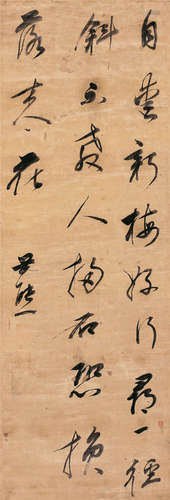 自愛新梅好行尋一徑
斜不教人掃石恐損
落來花